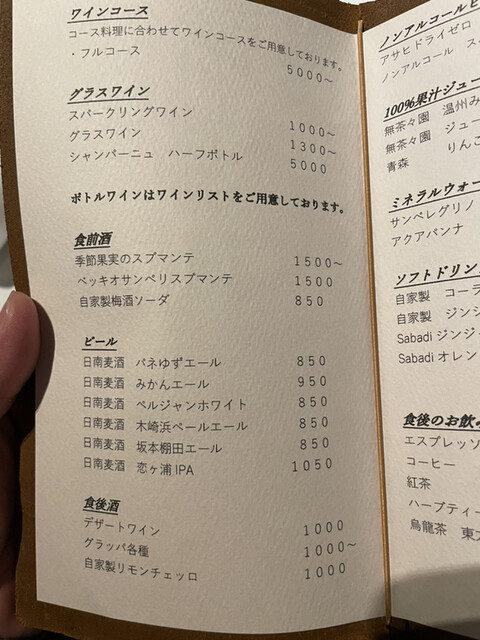 ワインコース
コース料理に合わせてワインコースをご用意しております。
・フルコース 5000〜
グラスワイン
スパークリングワイン 1000〜
グラスワイン 1300〜
シャンパーニュ ハーフボトル 5000
ボトルワインはワインリストをご用意しております。
食前酒
季節果実のスプマンテ 1500〜
ペッキオサンペリスプマンテ 1500
自家製梅酒ソーダ 850
ビール
日南麦酒 バネゆずエール 850
日南麦酒 みかんエール 950
日南麦酒 ベルジャンホワイト 850
日南麦酒 木崎浜ペールエール 850
日南麦酒 坂本棚田エール 850
日南麦酒 恋ヶ浦IPA 1050
食後酒
デザートワイン 1000
グラッパ各種 1000〜
自家製リモンチェッロ 1000
ノンアルコールビ
アサヒドライゼロ
ノンアルコール ス
100%果汁ジュー
無茶々園 温州み
無茶々園 ジュー
青森 りんご
ミネラルウォー
サンペレグリノ
アクアパンナ
ソフトドリン
自家製 コーラ
自家製 ジンジ
Sabadi ジンジ
Sabadi オレン
食後のお飲み
エスプレッソ
コーヒー
紅茶
ハーブティー
烏龍茶 東